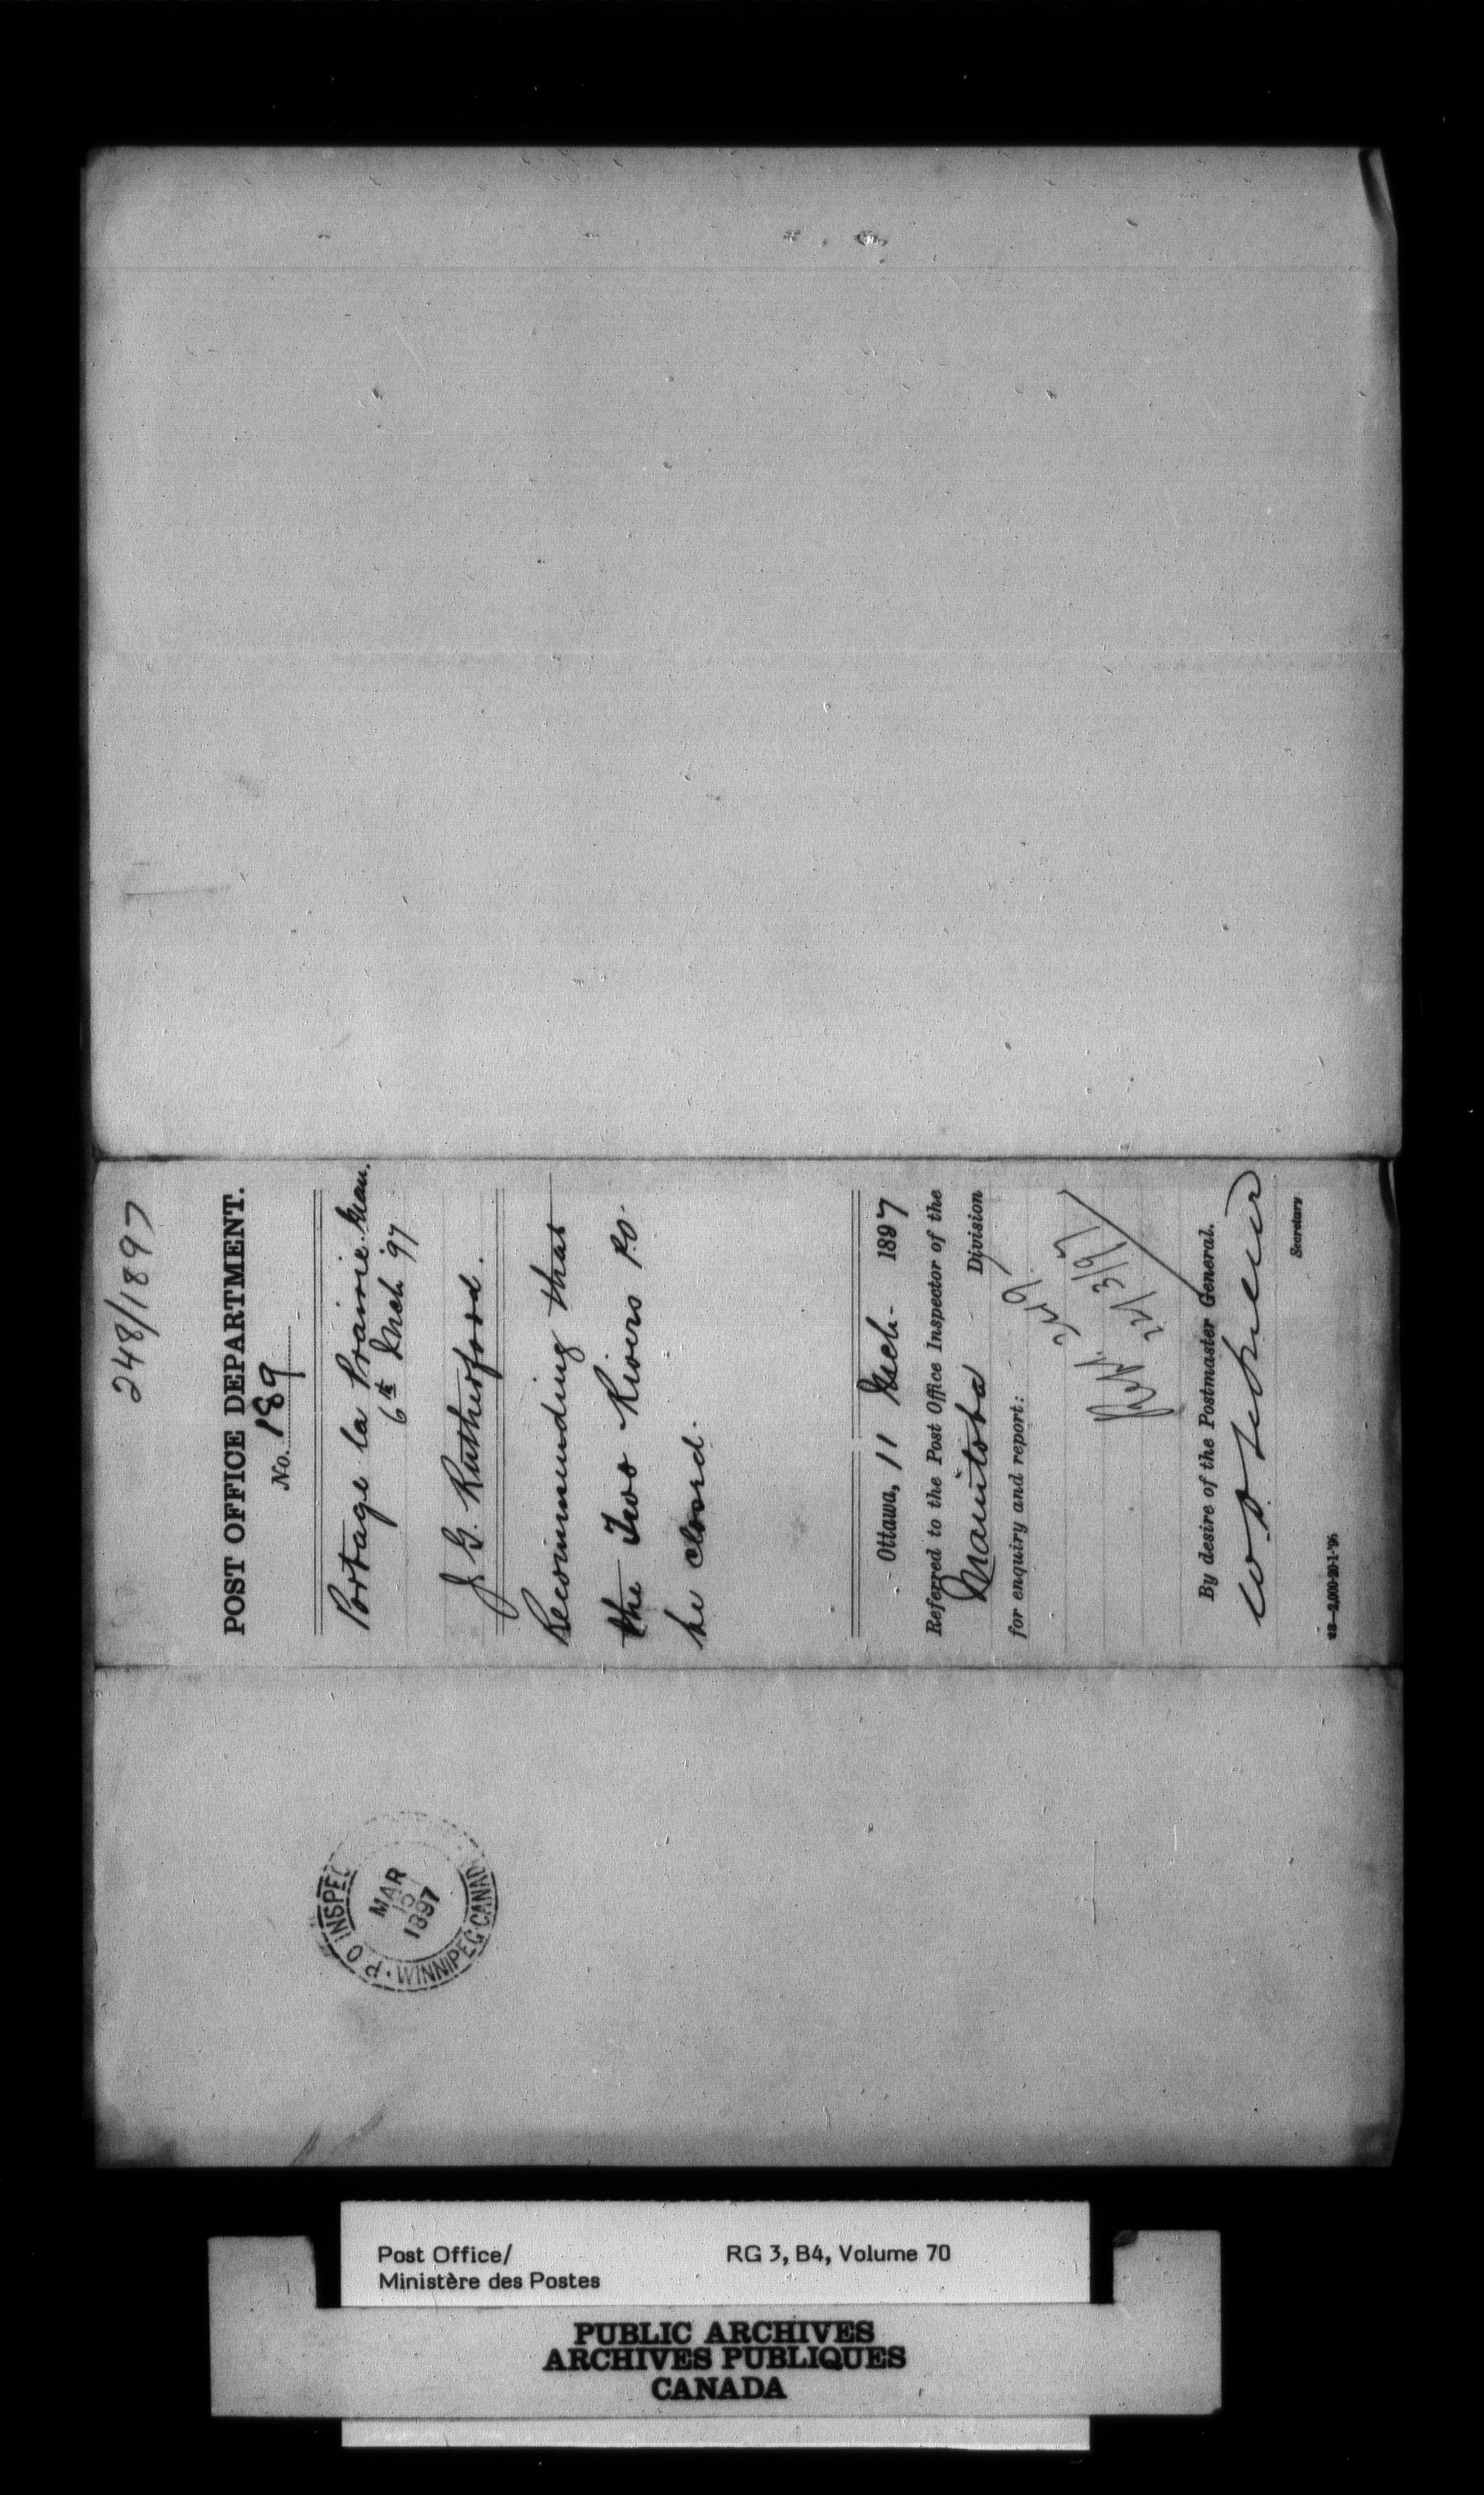 248/1897
POST OFFICE DEPARTMENT.
No. 189
Portage la Prairie. Man.
6th Mch '97
J. G. Rutherford.
Recommending that
the Two Rivers P.O.
be closed.
Ottawa, 11 Mch. 1897
Referred to the Post Office Inspector of the
Manitoba Division
for enquiry and report:
24/3/97
By desire of the Postmaster General.
Secretary
P O INSPEC
MAR
1897
WINNIPEG·CANAD
Post Office/ RG 3, B4, Volume 70
Ministère des Postes
PUBLIC ARCHIVES
ARCHIVES PUBLIQUES
CANADA